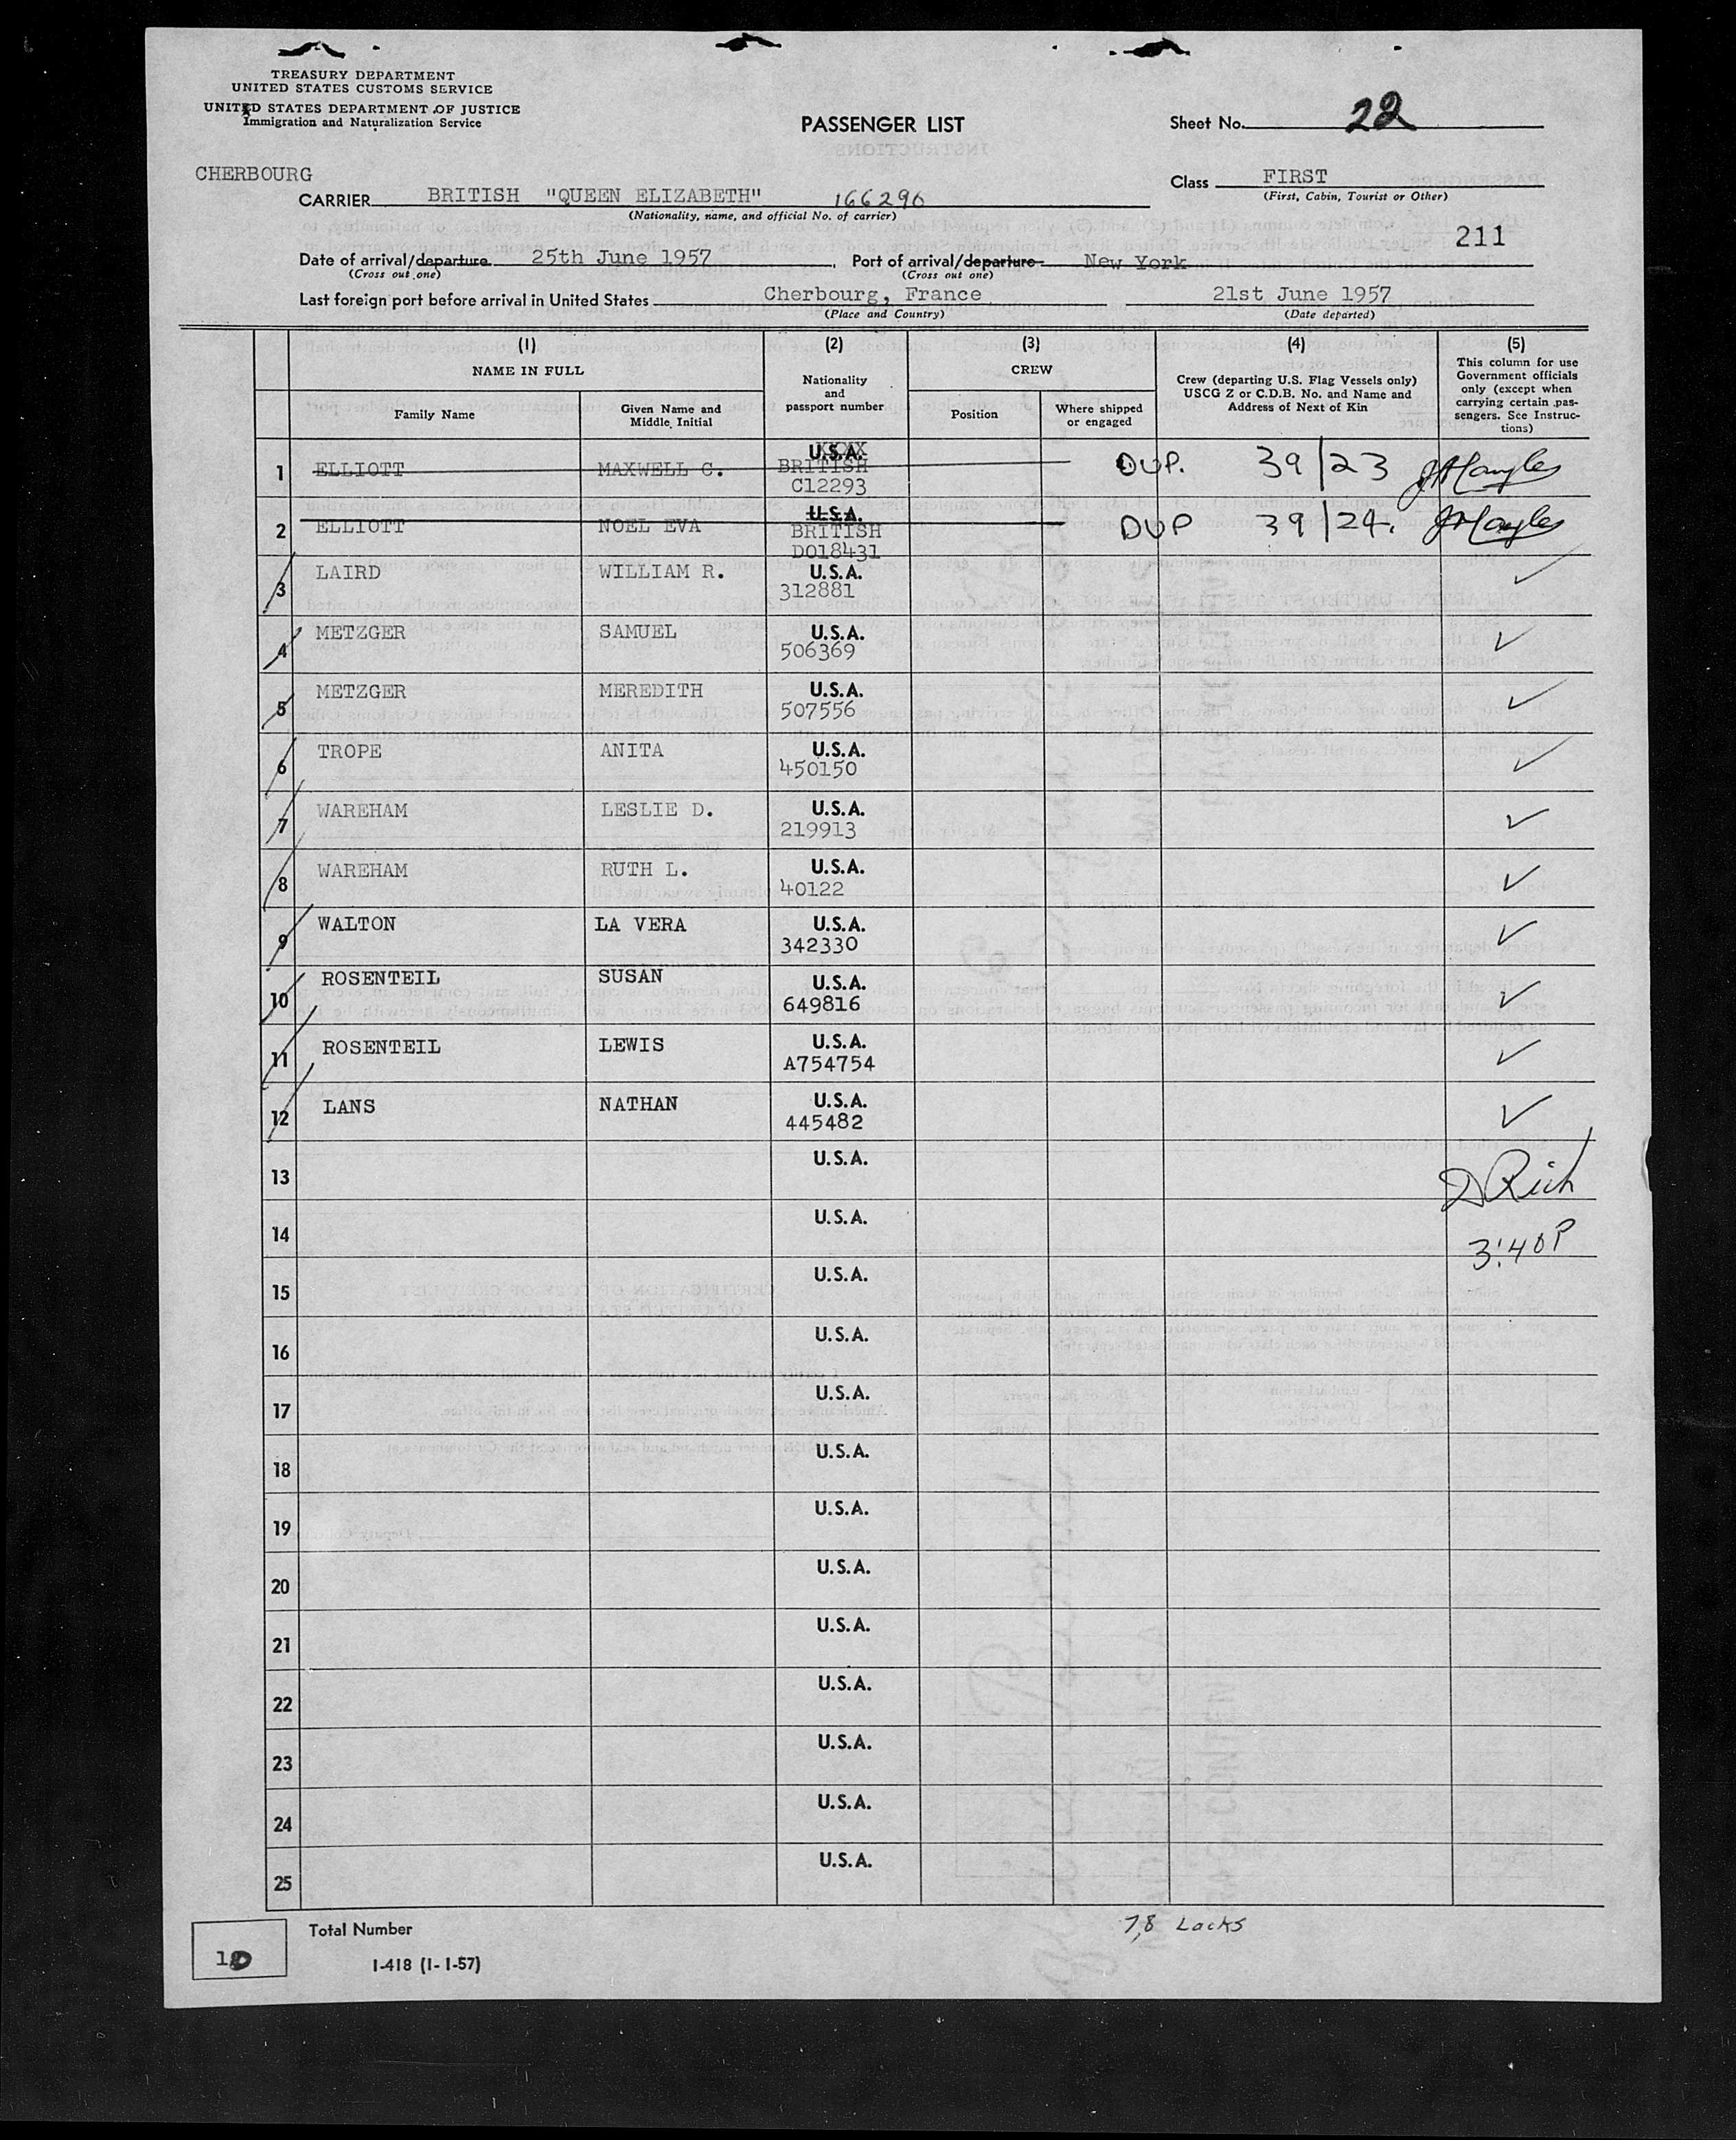 TREASURY DEPARTMENT
UNITED STATES CUSTOMS SERVICE
UNITED STATES DEPARTMENT OF JUSTICE
Immigration and Naturalization Service
PASSENGER LIST
Sheet No. 22
CHERBOURG
CARRIER BRITISH "QUEEN ELIZABETH" 166290
(Nationality, name, and official No. of carrier)
Class FIRST
(First, Cabin, Tourist or Other)
211
Date of arrival/departure 25th June 1957, Port of arrival/departure New York
(Cross out one) (Cross out one)
Last foreign port before arrival in United States Cherbourg, France 21st June 1957
(Place and Country) (Date departed)
(1) (2) (3) (4) (5)
NAME IN FULL
Family Name
Given Name and
Middle Initial
Nationality
and
passport number
CREW
Position
Where shipped
or engaged
Crew (departing U.S. Flag Vessels only)
USCG Z or C.D.B. No. and Name and
Address of Next of Kin
This column for use
Government officials
only (except when
carrying certain pas-
sengers. See Instruc-
tions)
1 ELLIOTT MAXWELL C. U.S.A. XXXX BRITISH C12293 DUP. 39/23
2 ELLIOTT NOEL EVA U.S.A. BRITISH D018431 DUP 39/24.
3 LAIRD WILLIAM R. U.S.A. 312881 ✓
4 METZGER SAMUEL U.S.A. 506369 ✓
5 METZGER MEREDITH U.S.A. 507556 ✓
6 TROPE ANITA U.S.A. 450150 ✓
7 WAREHAM LESLIE D. U.S.A. 219913 ✓
8 WAREHAM RUTH L. U.S.A. 40122 ✓
9 WALTON LA VERA U.S.A. 342330 ✓
10 ROSENTEIL SUSAN U.S.A. 649816 ✓
11 ROSENTEIL LEWIS U.S.A. A754754 ✓
12 LANS NATHAN U.S.A. 445482 ✓
13 U.S.A. D Rich
14 U.S.A. 3:40P
15 U.S.A.
16 U.S.A.
17 U.S.A.
18 U.S.A.
19 U.S.A.
20 U.S.A.
21 U.S.A.
22 U.S.A.
23 U.S.A.
24 U.S.A.
25 U.S.A.
10 Total Number
7,8 Lacks
I-418 (1-1-57)